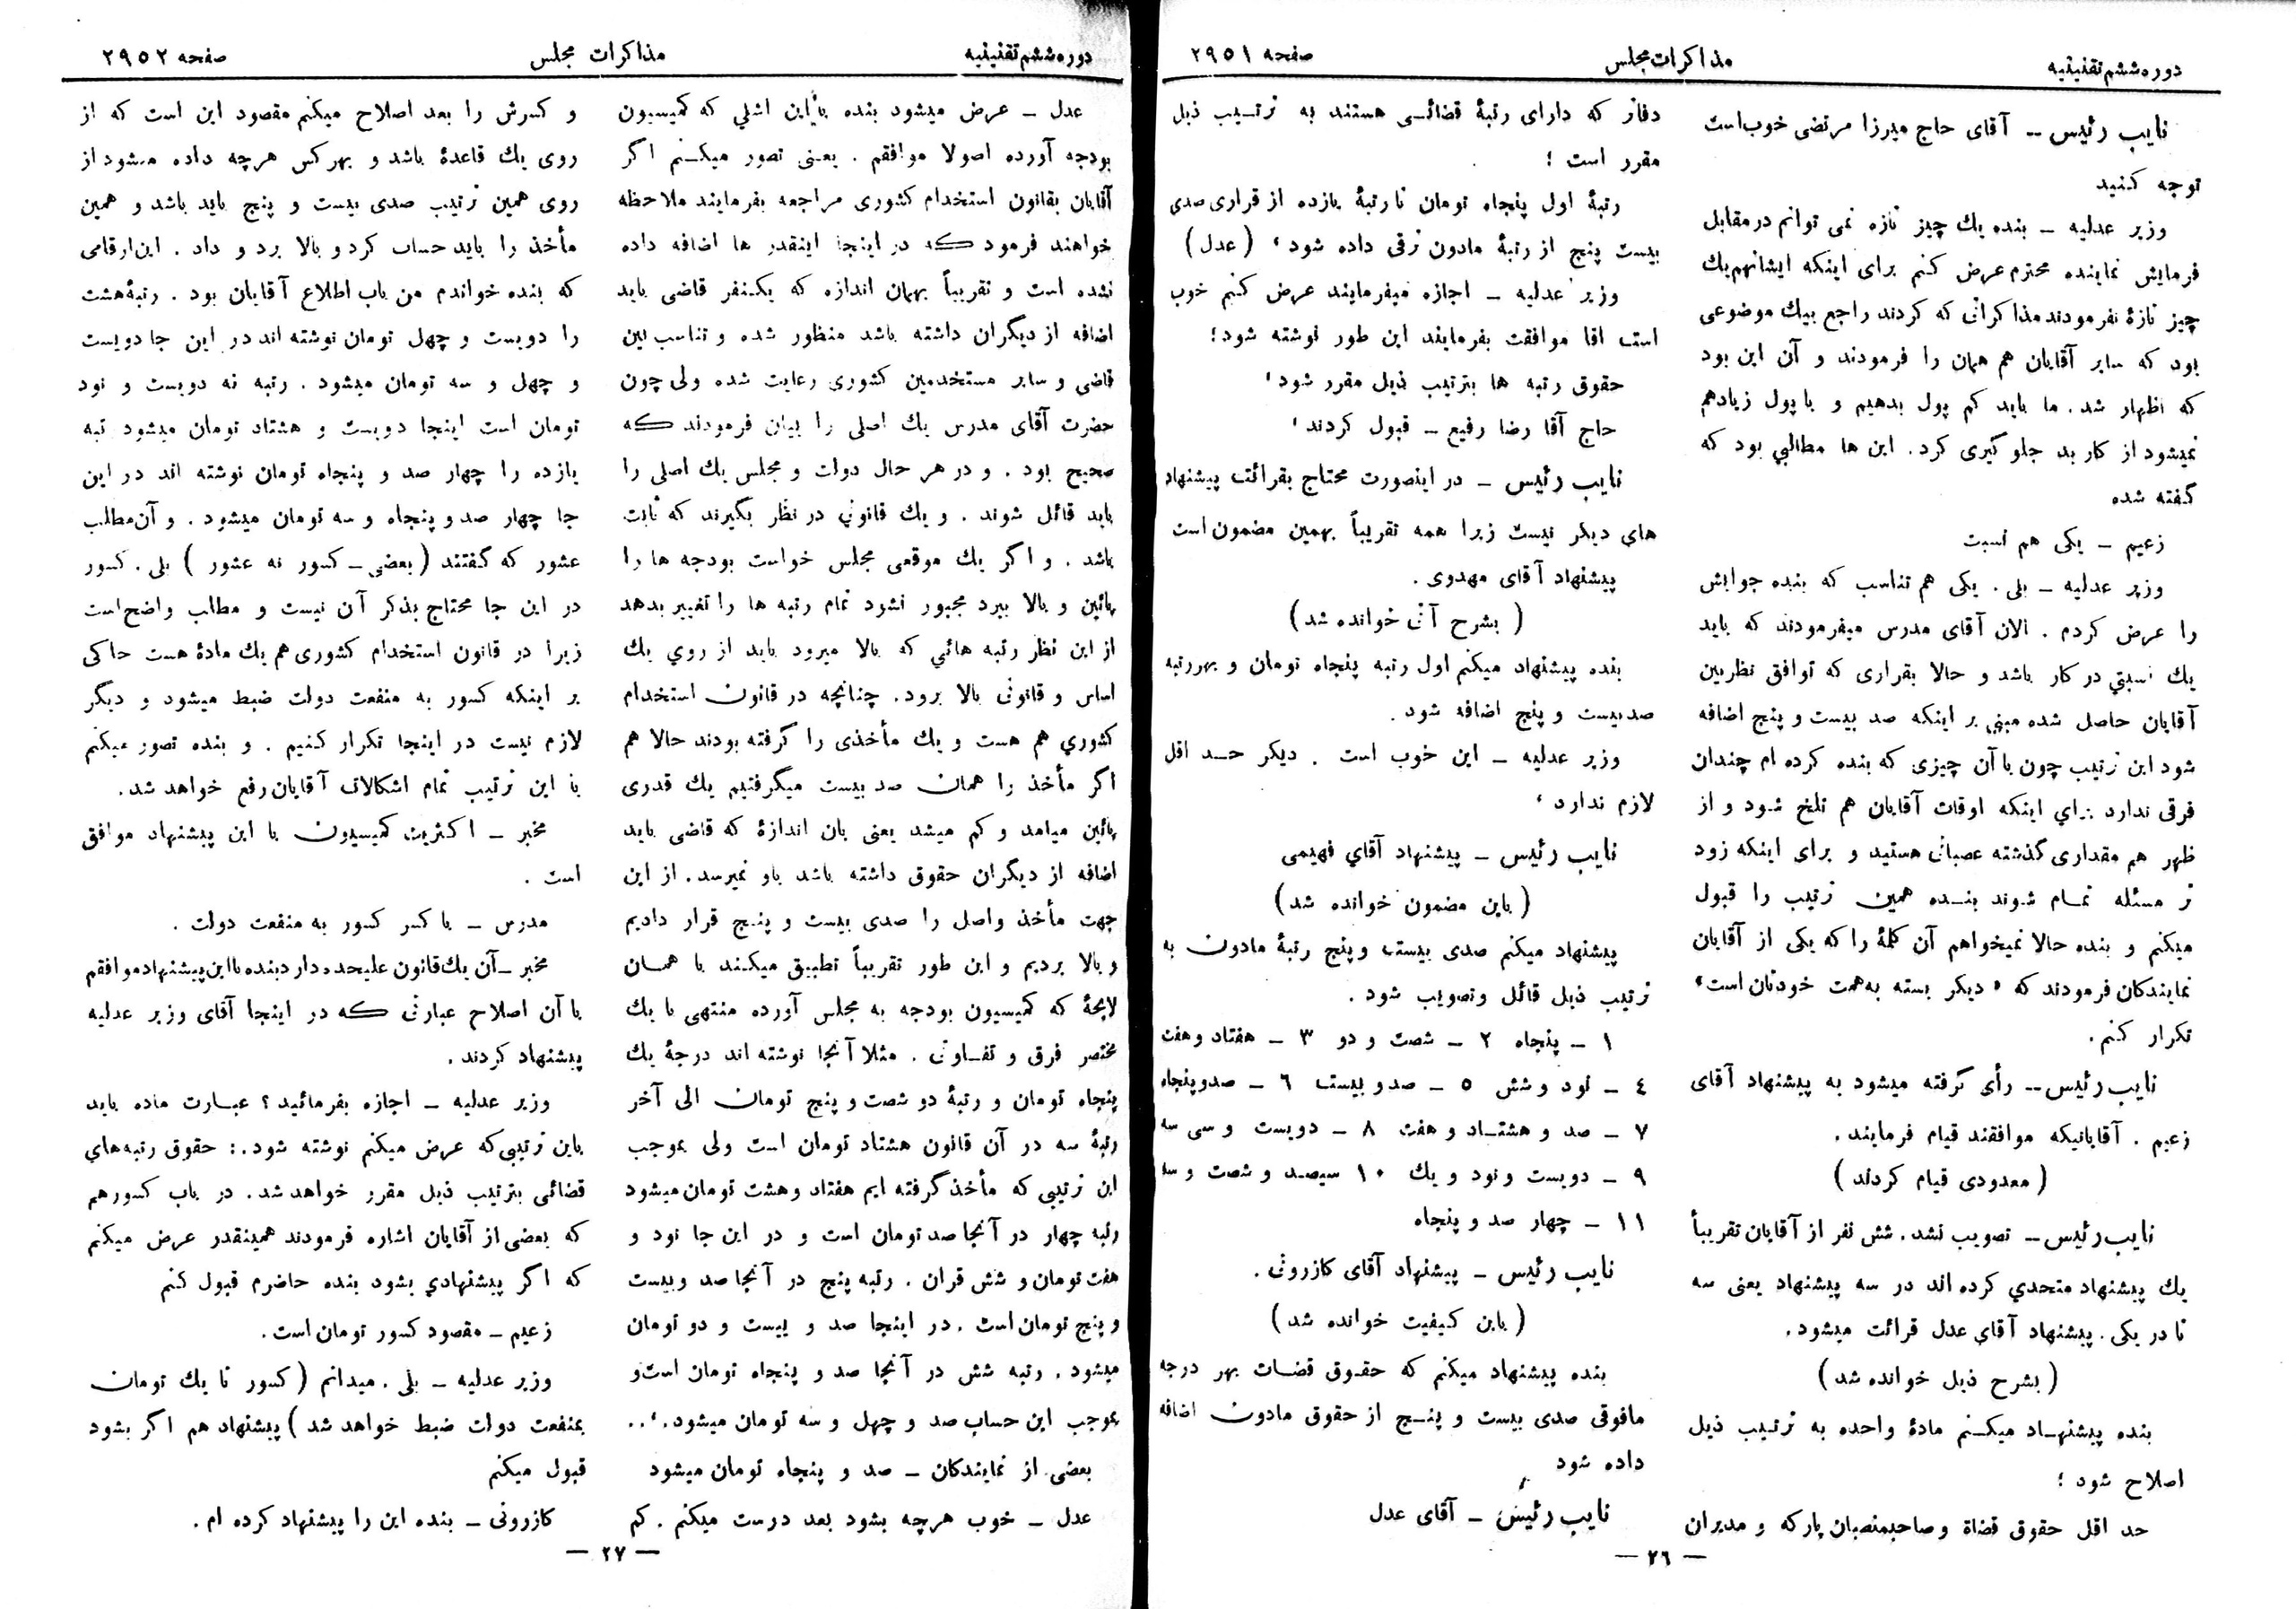 دوره ششم تقنینیه
مذاکرات مجلس
صفحه ۲۹۵۱
نایب رئیس – آقای حاج میرزا مرتضی خوب است
توجه کنید
وزیر عدلیه – بنده یك چیز تازه نمی توانم در مقابل
فرمایش نماینده محترم عرض کنم برای اینکه ایشانهم یك
چیز تازهٔ نفرمودند مذاکراتی که کردند راجع بیك موضوعی
بود که سایر آقایان هم همان را فرمودند و آن این بود
که اظهار شد. ما باید کم پول بدهیم و با پول زیادهم
نمیشود از کار بد جلوگیری کرد. این ها مطالبی بود که
گفته شده
زعیم – یکی هم نسبت
وزیر عدلیه – بلی. یکی هم تناسب که بنده جوابش
را عرض کردم. الان آقای مدرس میفرمودند که باید
یك نسبتی در کار باشد و حالا بقراری که توافق نظر بین
آقایان حاصل شده مبنی بر اینکه صد بیست و پنج اضافه
شود این ترتیب چون با آن چیزی که بنده کرده ام چندان
فرقی ندارد برای اینکه اوقات آقایان هم تلخ شود و از
ظهر هم مقداری گذشته عصبانی هستید و برای اینکه زود
تر مسئله تمام شوند بنده همین ترتیب را قبول
میکنم و بنده حالا نمیخواهم آن کلمهٔ را که یکی از آقایان
نمایندکان فرمودند که «دیکر بسته به همت خودتان است»
تکرار کنم.
نایب رئیس – رأی گرفته میشود به پیشنهاد آقای
زعیم. آقایانیکه موافقند قیام فرمایند.
(معدودی قیام کردند)
نایب رئیس – تصویب نشد. شش نفر از آقایان تقریبأ
یك پیشنهاد متحدی کرده اند در سه پیشنهاد یعنی سه
تا در یکی. پیشنهاد آقای عدل قرائت میشود.
(بشرح ذیل خوانده شد)
بنده پیشنهاد میکنم مادهٔ واحده به ترتیب ذیل
اصلاح شود؛
حد اقل حقوق قضاة و صاحبمنصبان پارکه و مدیران
دفاتر که دارای رتبهٔ قضائی هستند به ترتیب ذیل
مقرر است؛
رتبهٔ اول پنجاه تومان تا رتبهٔ یازده از قراری صدی
بیست پنج از رتبهٔ مادون ترقی داده شود، (عدل)
وزیر عدلیه – اجازه میفرمایند عرض کنم خوب
است آقا موافقت بفرمایند این طور نوشته شود؛
حقوق رتبه ها بترتیب ذیل مقرر شود،
حاج آقا رضا رفیع – قبول کردند،
نایب رئیس – در اینصورت محتاج بقرائت پیشنهاد
های دیکر نیست زیرا همه تقریباً بهمین مضمون است
پیشنهاد آقای مهدوی.
(بشرح آتی خوانده شد)
بنده پیشنهاد میکنم اول رتبه پنجاه تومان و بهر رتبه
صد بیست و پنج اضافه شود.
وزیر عدلیه – این خوب است. دیکر حد اقل
لازم ندارد،
نایب رئیس – پیشنهاد آقای فهیمی
(باین مضمون خوانده شد)
پیشنهاد میکنم صدی بیست و پنج رتبهٔ مادون به
ترتیب ذیل قائل و تصویب شود.
۱ – پنجاه ۲ – شصت و دو ۳ – هفتاد و هفت
۴ – نود و شش ۵ – صد و بیست ۶ – صد و پنجاه
۷ – صد و هشتاد و هفت ۸ – دویست و سی سه
۹ – دویست و نود و یك ۱۰ سیصد و شصت و سه
۱۱ – چهار صد و پنجاه
نایب رئیس – پیشنهاد آقای کازرونی.
(باین کیفیت خوانده شد)
بنده پیشنهاد میکنم که حقوق قضات بهر درجه
مافوقی صدی بیست و پنج از حقوق مادون اضافه
داده شود
نایب رئیس – آقای عدل
– ۲۶ –
دوره ششم تقنینیه
مذاکرات مجلس
صفحه ۲۹۵۲
عدل – عرض میشود بنده با این اشلی که کمیسیون
بودجه آورده اصولا موافقم. یعنی تصور میکنم اگر
آقایان بقانون استخدام کشوری مراجعه بفرمایند ملاحظه
خواهند فرمود که در اینجا اینقدر ها اضافه داده
نشده است و تقریباً بهمان اندازه که یکنفر قاضی باید
اضافه از دیگران داشته باشد منظور شده و تناسب بین
قاضی و سایر مستخدمین کشوری رعایت شده ولی چون
حضرت آقای مدرس یك اصلی را بیان فرمودند که
صحیح بود. و در هر حال دولت و مجلس یك اصلی را
باید قائل شوند. و یك قانونی در نظر بگیرند که ثابت
باشد. و اگر یك موقعی مجلس خواست بودجه ها را
پائین و بالا ببرد مجبور نشود تمام رتبه ها را تغییر بدهد
از این نظر رتبه هائی که بالا میرود باید از روی یك
اساس و قانونی بالا برود. چنانچه در قانون استخدام
کشوری هم هست و یك مأخذی را گرفته بودند حالا هم
اگر مأخذ را همان صد بیست میگرفتیم یك قدری
پائین میامد و کم میشد یعنی بان اندازهٔ که قاضی باید
اضافه از دیگران حقوق داشته باشد باو نمیرسد. از این
جهت مأخذ و اصل را صدی بیست و پنج قرار دادیم
و بالا بردیم و این طور تقریباً تطبیق میکند با همان
لایحهٔ که کمیسیون بودجه به مجلس آورده منتهی با یك
مختصر فرق و تفاوتی. مثلا آنجا نوشته اند درجهٔ یك
پنجاه تومان و رتبهٔ دو شصت و پنج تومان الی آخر
رتبهٔ سه در آن قانون هشتاد تومان است ولی بموجب
این ترتیبی که مأخذ گرفته ایم هفتاد و هشت تومان میشود
رتبه چهار در آنجا صد تومان است و در این جا نود و
هفت تومان و شش قران. رتبه پنج در آنجا صد و بیست
و پنج تومان است. در اینجا صد و بیست و دو تومان
میشود. رتبه شش در آنجا صد و پنجاه تومان است و
بموجب این حساب صد و چهل و سه تومان میشود...
بعضی از نمایندکان – صد و پنجاه تومان میشود
عدل – خوب هرچه بشود بعد درست میکنم. کم
و کسرش را بعد اصلاح میکنم مقصود این است که از
روی یك قاعدهٔ باشد و بهر کس هرچه داده میشود از
روی همین ترتیب صدی بیست و پنج باید باشد و همین
مأخذ را باید حساب کرد و بالا برد و داد. این ارقامی
که بنده خواندم من باب اطلاع آقایان بود. رتبهٔ هشت
را دویست و چهل تومان نوشته اند در این جا دویست
و چهل و سه تومان میشود. رتبه نه دویست و نود
تومان است اینجا دویست و هشتاد تومان میشود تبه
یازده را چهار صد و پنجاه تومان نوشته اند در این
جا چهار صد و پنجاه و سه تومان میشود. و آن مطلب
عشور که گفتند (بعضی – کسور نه عشور) بلی. کسور
در این جا محتاج بذکر آن نیست و مطالب واضح است
زیرا در قانون استخدام کشوری هم یك مادهٔ هست حاکی
بر اینکه کسور به منفعت دولت ضبط میشود و دیگر
لازم نیست در اینجا تکرار کنیم. و بنده تصور میکنم
با این ترتیب تمام اشکالات آقایان رفع خواهد شد.
مخبر – اکثریت کمیسیون با این پیشنهاد موافق
است.
مدرس – با کسر کسور به منفعت دولت.
مخبر – آن یك قانون علیحده دارد بنده با این پیشنهاد موافقم
با آن اصلاح عبارتی که در اینجا آقای وزیر عدلیه
پیشنهاد کردند.
وزیر عدلیه – اجازه بفرمائید؟ عبارت ماده باید
باین ترتیبی که عرض میکنم نوشته شود.: حقوق رتبه های
قضائی بترتیب ذیل مقرر خواهد شد. در باب کسور هم
که بعضی از آقایان اشاره فرمودند همینقدر عرض میکنم
که اگر پیشنهادی بشود بنده حاضرم قبول کنم
زعیم – مقصود کسور تومان است.
وزیر عدلیه – بلی. میدانم (کسور تا یك تومان
بمنفعت دولت ضبط خواهد شد) پیشنهاد هم اگر بشود
قبول میکنم
کازرونی – بنده این را پیشنهاد کرده ام.
– ۲۷ –